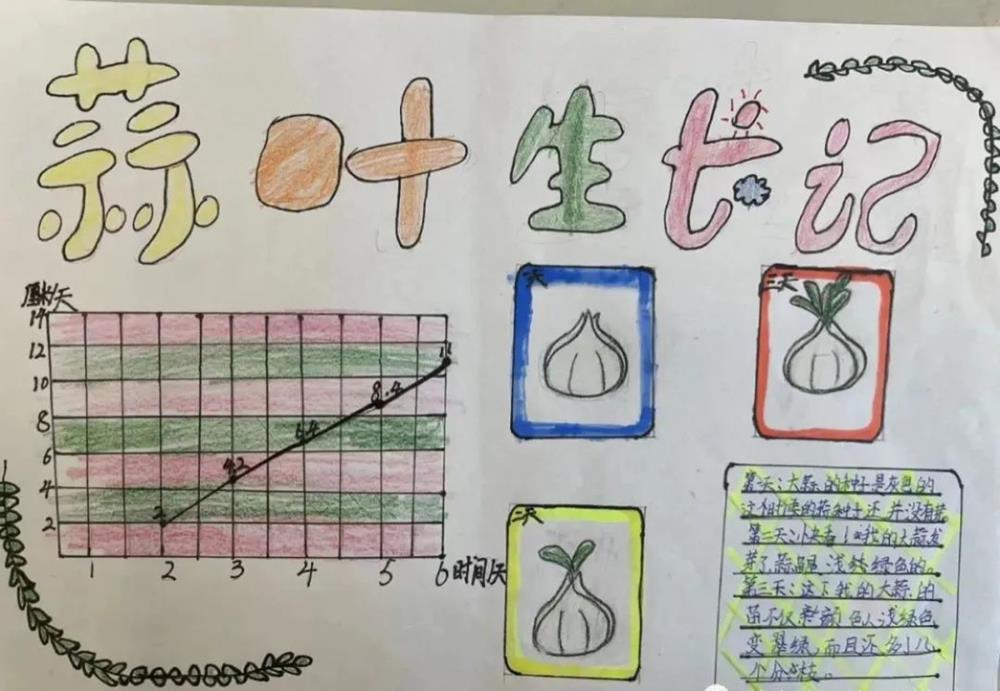 蒜叶生长记
厘米/天
14
12
10
8
6
4
2
2
4.2
6.4
8.4
11
1 2 3 4 5 6 时间/天
一天
三天
二天
第一天:大蒜的种子是灰色的
这个时候的蒜种子还并没有芽
第二天:快来看!我的大蒜发
芽了,浅绿色的。
第三天:这下我的大蒜的
苗不仅颜色从浅绿色
变翠绿,而且还多了几
个分枝。